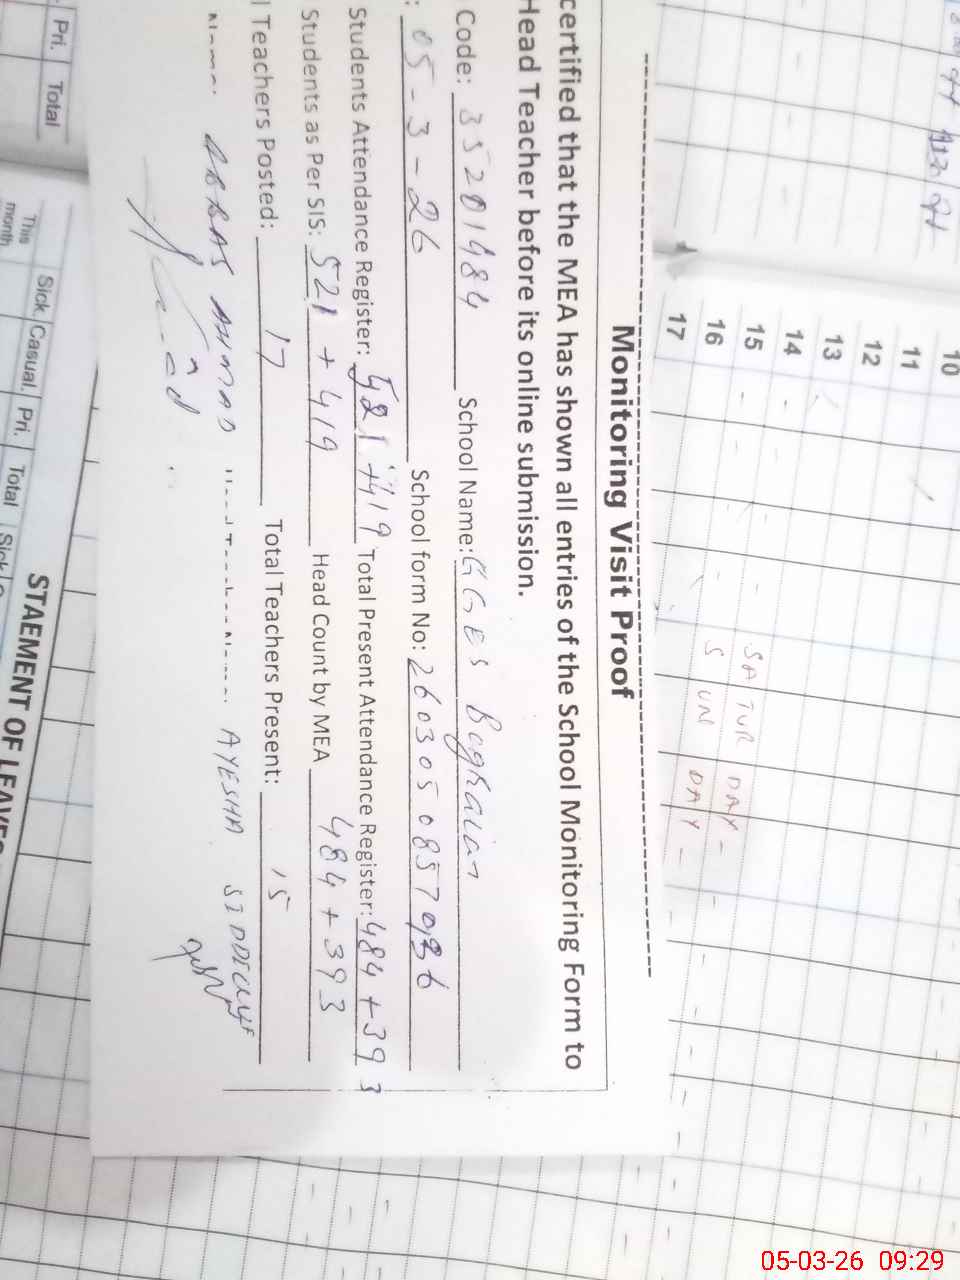 Monitoring Visit Proof
certified that the MEA has shown all entries of the School Monitoring Form to
Head Teacher before its online submission.
Code: 35201484 School Name: GGES Bograian
: 05-3-26 School form No: 2603050857
Students Attendance Register: 521 + 419 Total Present Attendance Register: 484 + 393
Students as Per SIS: 521 + 419 Head Count by MEA 484 + 393
l Teachers Posted: 17 Total Teachers Present: 15
ABBAS AHMAD AYESHA SIDDIQUE
10
11
12
13
14
15 SATUR DAY -
16 SUN DAY -
17
Pri. Total
This month
Sick. Casual. Pri. Total Sick
STAEMENT OF LEAVES
05-03-26 09:29